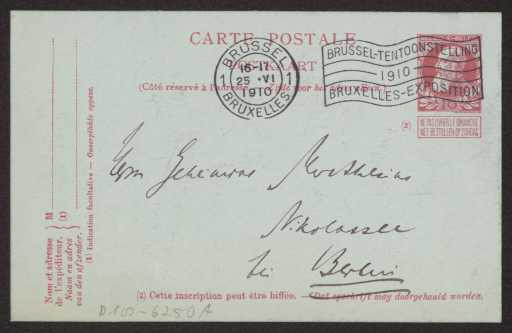 CARTE POSTALE
POSTKAART
(Côté réservé à l'adresse. — Zijde voor het adres.)
BRUSSEL
1 16-17 1
25 · VI
1910
BRUXELLES
BRUSSEL-TENTOONSTELLING
1910
BRUXELLES-EXPOSITION
NE PAS LIVRER LE DIMANCHE
NIET BESTELLEN OP ZONDAG
(2)
Herrn Geheimrat Muthesius
Nikolassee
bei Berlin
Nom et adresse
de l'expéditeur.
Naam en adres
van den afzender.
M
(1)
(1) Indication facultative — Onverplichte opgave.
(2) Cette inscription peut être biffée. — Dat opschrift may doorgehaald worden.
D 102-6250A